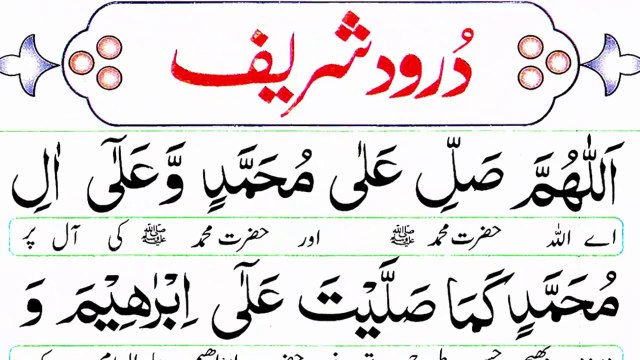 درود شریف
اَللّٰهُمَّ صَلِّ عَلٰى مُحَمَّدٍ وَّعَلٰٓى اٰلِ
اے اللہ حضرت محمد ﷺ اور حضرت محمد ﷺ کی آل پر
مُحَمَّدٍ كَمَا صَلَّيْتَ عَلٰٓى اِبْرٰهِيْمَ وَ